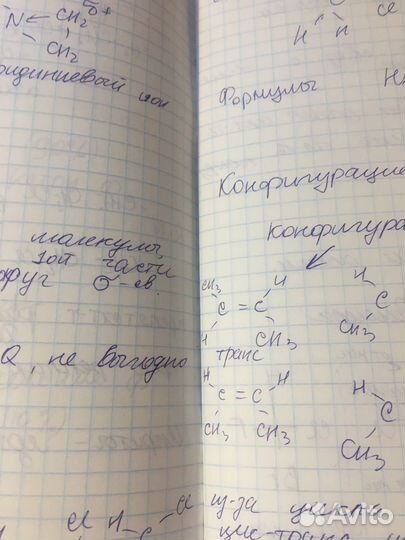 N CH₂ δ+
CH₂
молекулы,
той части
друг σ-св.
Q, не выгодно
Cl H C Cl
H H Cl
Формулы
Конфигурацие
конфигура
CH₃ H
C = C
H CH₃
транс
H H
C = C
CH₃ CH₃
H
C
CH₃
H
C
CH₃
из-за цикла
цис-транс
Avito